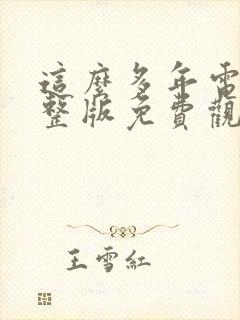 這麼多年電
整版免費觀
王雪紅